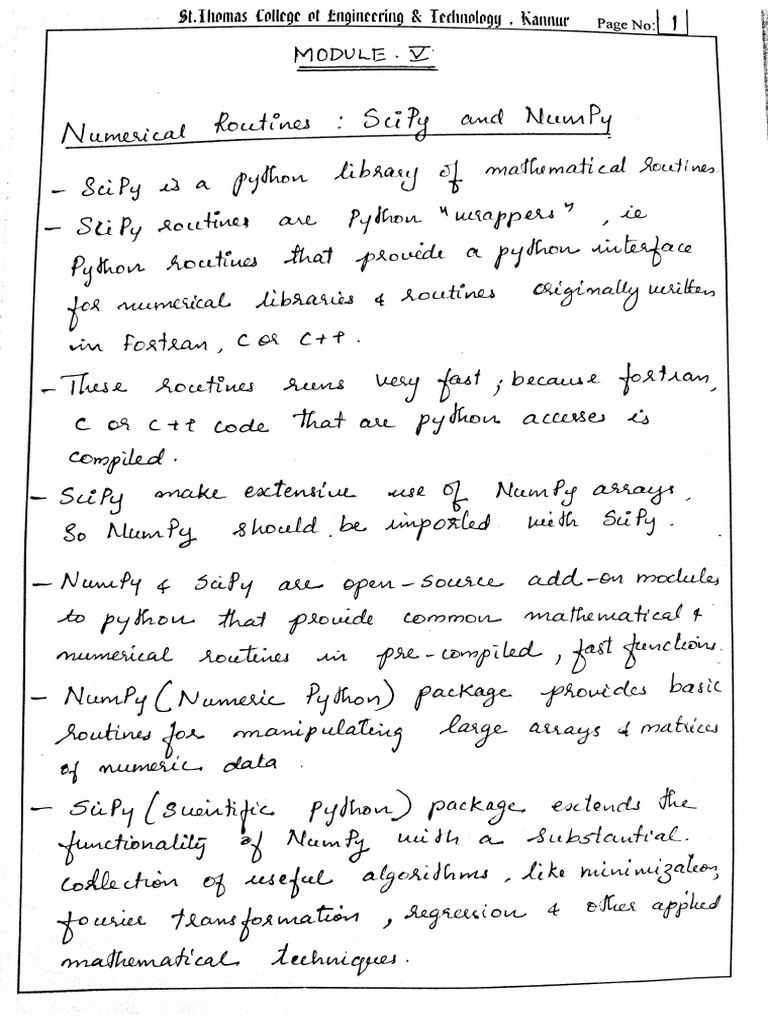 St.Thomas College of Engineering & Technology, Kannur Page No: 1
MODULE. V
Numerical Routines : SciPy and NumPy
- SciPy is a python library of mathematical routines.
- SciPy routines are Python "wrappers", ie
Python routines that provide a python interface
for numerical libraries & routines originally written
in Fortran, C or C++.
- These routines runs very fast; because fortran,
C or C++ code that are python accesses is
compiled.
- SciPy make extensive use of NumPy arrays,
So NumPy should be imported with SciPy.
- NumPy & SciPy are open-source add-on modules
to python that provide common mathematical &
numerical routines in pre-compiled, fast functions.
- NumPy (Numeric Python) package provides basic
routines for manipulating large arrays & matrices
of numeric data.
- SciPy (Scientific python) package extends the
functionality of NumPy with a substantial
collection of useful algorithms, like minimization,
fourier transformation, regression & other applied
mathematical techniques.